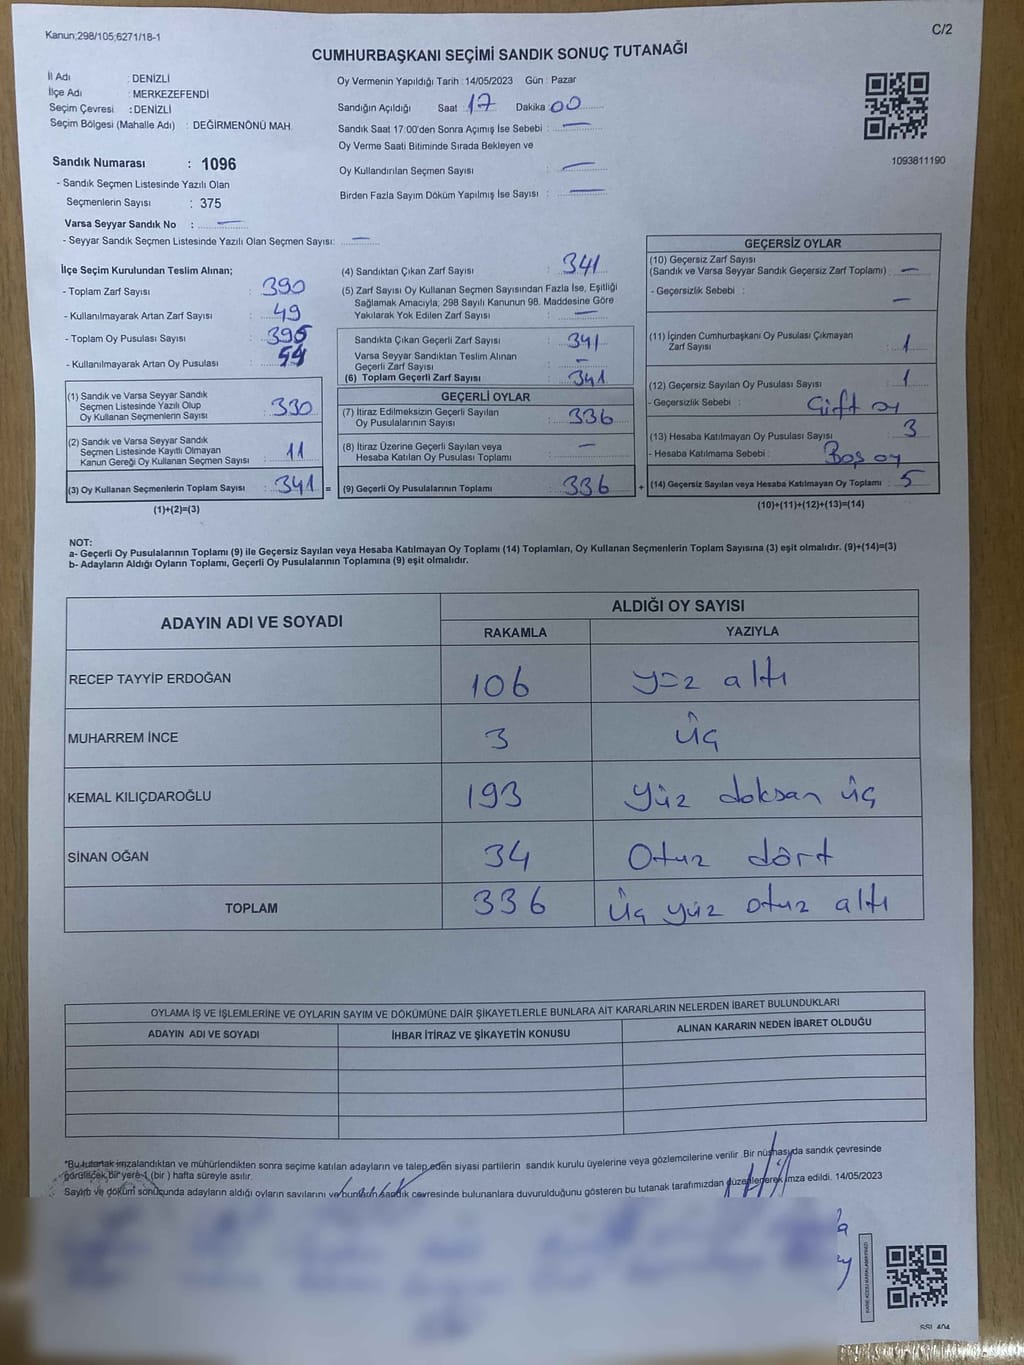 Kanun;298/105;6271/18-1
C/2
CUMHURBAŞKANI SEÇİMİ SANDIK SONUÇ TUTANAĞI
İl Adı : DENİZLİ
İlçe Adı : MERKEZEFENDİ
Seçim Çevresi : DENİZLİ
Seçim Bölgesi (Mahalle Adı) : DEĞİRMENÖNÜ MAH.
Sandık Numarası : 1096
- Sandık Seçmen Listesinde Yazılı Olan
Seçmenlerin Sayısı : 375
Varsa Seyyar Sandık No : —
- Seyyar Sandık Seçmen Listesinde Yazılı Olan Seçmen Sayısı: —
Oy Vermenin Yapıldığı Tarih : 14/05/2023 Gün : Pazar
Sandığın Açıldığı Saat 17 Dakika 00
Sandık Saat 17:00'den Sonra Açımış İse Sebebi : —
Oy Verme Saati Bitiminde Sırada Bekleyen ve
Oy Kullandırılan Seçmen Sayısı : —
Birden Fazla Sayım Döküm Yapılmış İse Sayısı : —
1093811190
İlçe Seçim Kurulundan Teslim Alınan;
- Toplam Zarf Sayısı : 390
- Kullanılmayarak Artan Zarf Sayısı : 49
- Toplam Oy Pusulası Sayısı : 395
- Kullanılmayarak Artan Oy Pusulası : 54
(1) Sandık ve Varsa Seyyar Sandık
Seçmen Listesinde Yazılı Olup
Oy Kullanan Seçmenlerin Sayısı : 330
(2) Sandık ve Varsa Seyyar Sandık
Seçmen Listesinde Kayıtlı Olmayan
Kanun Gereği Oy Kullanan Seçmen Sayısı : 11
(3) Oy Kullanan Seçmenlerin Toplam Sayısı : 341 =
(1)+(2)=(3)
(4) Sandıktan Çıkan Zarf Sayısı : 341
(5) Zarf Sayısı Oy Kullanan Seçmen Sayısından Fazla İse, Eşitliği
Sağlamak Amacıyla; 298 Sayılı Kanunun 98. Maddesine Göre
Yakılarak Yok Edilen Zarf Sayısı : —
Sandıkta Çıkan Geçerli Zarf Sayısı : 341
Varsa Seyyar Sandıktan Teslim Alınan
Geçerli Zarf Sayısı : —
(6) Toplam Geçerli Zarf Sayısı : 341
GEÇERLİ OYLAR
(7) İtiraz Edilmeksizin Geçerli Sayılan
Oy Pusulalarının Sayısı : 336
(8) İtiraz Üzerine Geçerli Sayılan veya
Hesaba Katılan Oy Pusulası Toplamı : —
(9) Geçerli Oy Pusulalarının Toplamı : 336 +
GEÇERSİZ OYLAR
(10) Geçersiz Zarf Sayısı
(Sandık ve Varsa Seyyar Sandık Geçersiz Zarf Toplamı) : —
- Geçersizlik Sebebi : —
(11) İçinden Cumhurbaşkanı Oy Pusulası Çıkmayan
Zarf Sayısı : 1
(12) Geçersiz Sayılan Oy Pusulası Sayısı : 1
- Geçersizlik Sebebi : Çift oy
(13) Hesaba Katılmayan Oy Pusulası Sayısı : 3
- Hesaba Katılmama Sebebi : Boş oy
(14) Geçersiz Sayılan veya Hesaba Katılmayan Oy Toplamı : 5
(10)+(11)+(12)+(13)=(14)
NOT:
a- Geçerli Oy Pusulalarının Toplamı (9) ile Geçersiz Sayılan veya Hesaba Katılmayan Oy Toplamı (14) Toplamları, Oy Kullanan Seçmenlerin Toplam Sayısına (3) eşit olmalıdır. (9)+(14)=(3)
b- Adayların Aldığı Oyların Toplamı, Geçerli Oy Pusulalarının Toplamına (9) eşit olmalıdır.
ADAYIN ADI VE SOYADI ALDIĞI OY SAYISI
RAKAMLA YAZIYLA
RECEP TAYYİP ERDOĞAN 106 yüz altı
MUHARREM İNCE 3 üç
KEMAL KILIÇDAROĞLU 193 yüz doksan üç
SİNAN OĞAN 34 Otuz dört
TOPLAM 336 üç yüz otuz altı
OYLAMA İŞ VE İŞLEMLERİNE VE OYLARIN SAYIM VE DÖKÜMÜNE DAİR ŞİKAYETLERLE BUNLARA AİT KARARLARIN NELERDEN İBARET BULUNDUKLARI
ADAYIN ADI VE SOYADI İHBAR İTİRAZ VE ŞİKAYETİN KONUSU ALINAN KARARIN NEDEN İBARET OLDUĞU
*Bu tutanak imzalandıktan ve mühürlendikten sonra seçime katılan adayların ve talep eden siyasi partilerin sandık kurulu üyelerine veya gözlemcilerine verilir. Bir nüshası da sandık çevresinde
görülecek bir yere 1 (bir) hafta süreyle asılır.
Sayım ve döküm sonucunda adayların aldığı oyların sayılarını ve bunların sandık çevresinde bulunanlara duyurulduğunu gösteren bu tutanak tarafımızdan düzenlenerek imza edildi. 14/05/2023